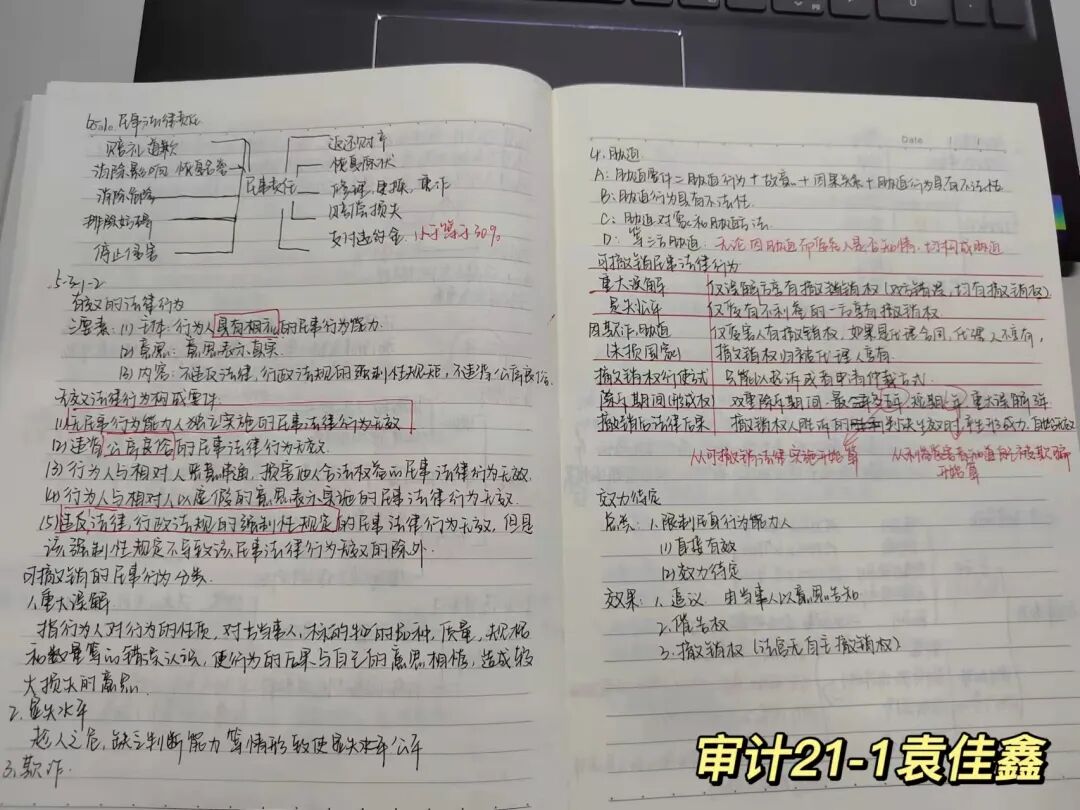 民事法律责任
赔礼道歉
消除影响 恢复名誉
消除危险
排除妨碍
停止侵害
民事责任
返还财产
恢复原状
修理,更换,重作
赔偿损失
支付违约金 小于等于30%
5-31-2
有效的法律行为
三要素:(1)主体:行为人具有相应的民事行为能力
(2)意思:意思表示真实
(3)内容:不违反法律,行政法规的强制性规定,不违背公序良俗
无效法律行为构成要件
(1)无民事行为能力人独立实施的民事法律行为无效
(2)违背公序良俗的民事法律行为无效
(3)行为人与相对人恶意串通,损害他人合法权益的民事法律行为无效
(4)行为人与相对人以虚假的意思表示实施的民事法律行为无效
(5)违反法律,行政法规的强制性规定的民事法律行为无效,但是
该强制性规定不导致该民事法律行为无效的除外
可撤销的民事行为分类
1.重大误解
指行为人对行为的性质,对方当事人,标的物的品种,质量,规格
和数量等的错误认识,使行为的后果与自己的意思相悖,造成较
大损失的意思
2.显失公平
趁人之危,缺乏判断能力等情形致使显失公平
3.欺诈
Date
4.胁迫
A:胁迫要件=胁迫行为+故意+因果关系+胁迫行为具有不法性
B:胁迫行为具有不法性
C:胁迫对象和胁迫方法
D:第三方胁迫:无论因胁迫而受益人是否知情,均构成胁迫
可撤销民事法律行为
重大误解 仅误解方享有撤销权(双方错误,均有撤销权)
显失公平 仅受有不利益的一方享有撤销权
因欺诈,胁迫 仅受害人有撤销权,如果是代理合同,代理人不享有,
(未损国家) 撤销权归被代理人享有
撤销权行使方式 只能以起诉或者申请仲裁方式
除斥期间(形成权) 双重除斥期间
撤销后法律后果
从可撤销法律实施开始算
效力待定
总类:1.限制民事行为能力人
(1)直接有效
(2)效力待定
效果:1.追认 由当事人以意思告知
2.催告权
3.撤销权(法官无自主撤销权)
审计21-1袁佳鑫